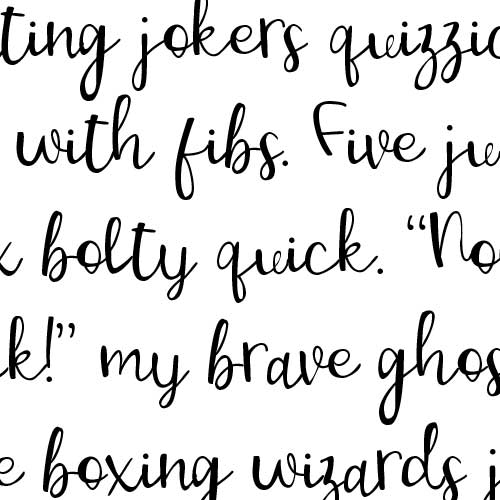 ting jokers quizzic
with fibs. Five ju
x bolty quick. “No
k!” my brave ghos
e boxing wizards j